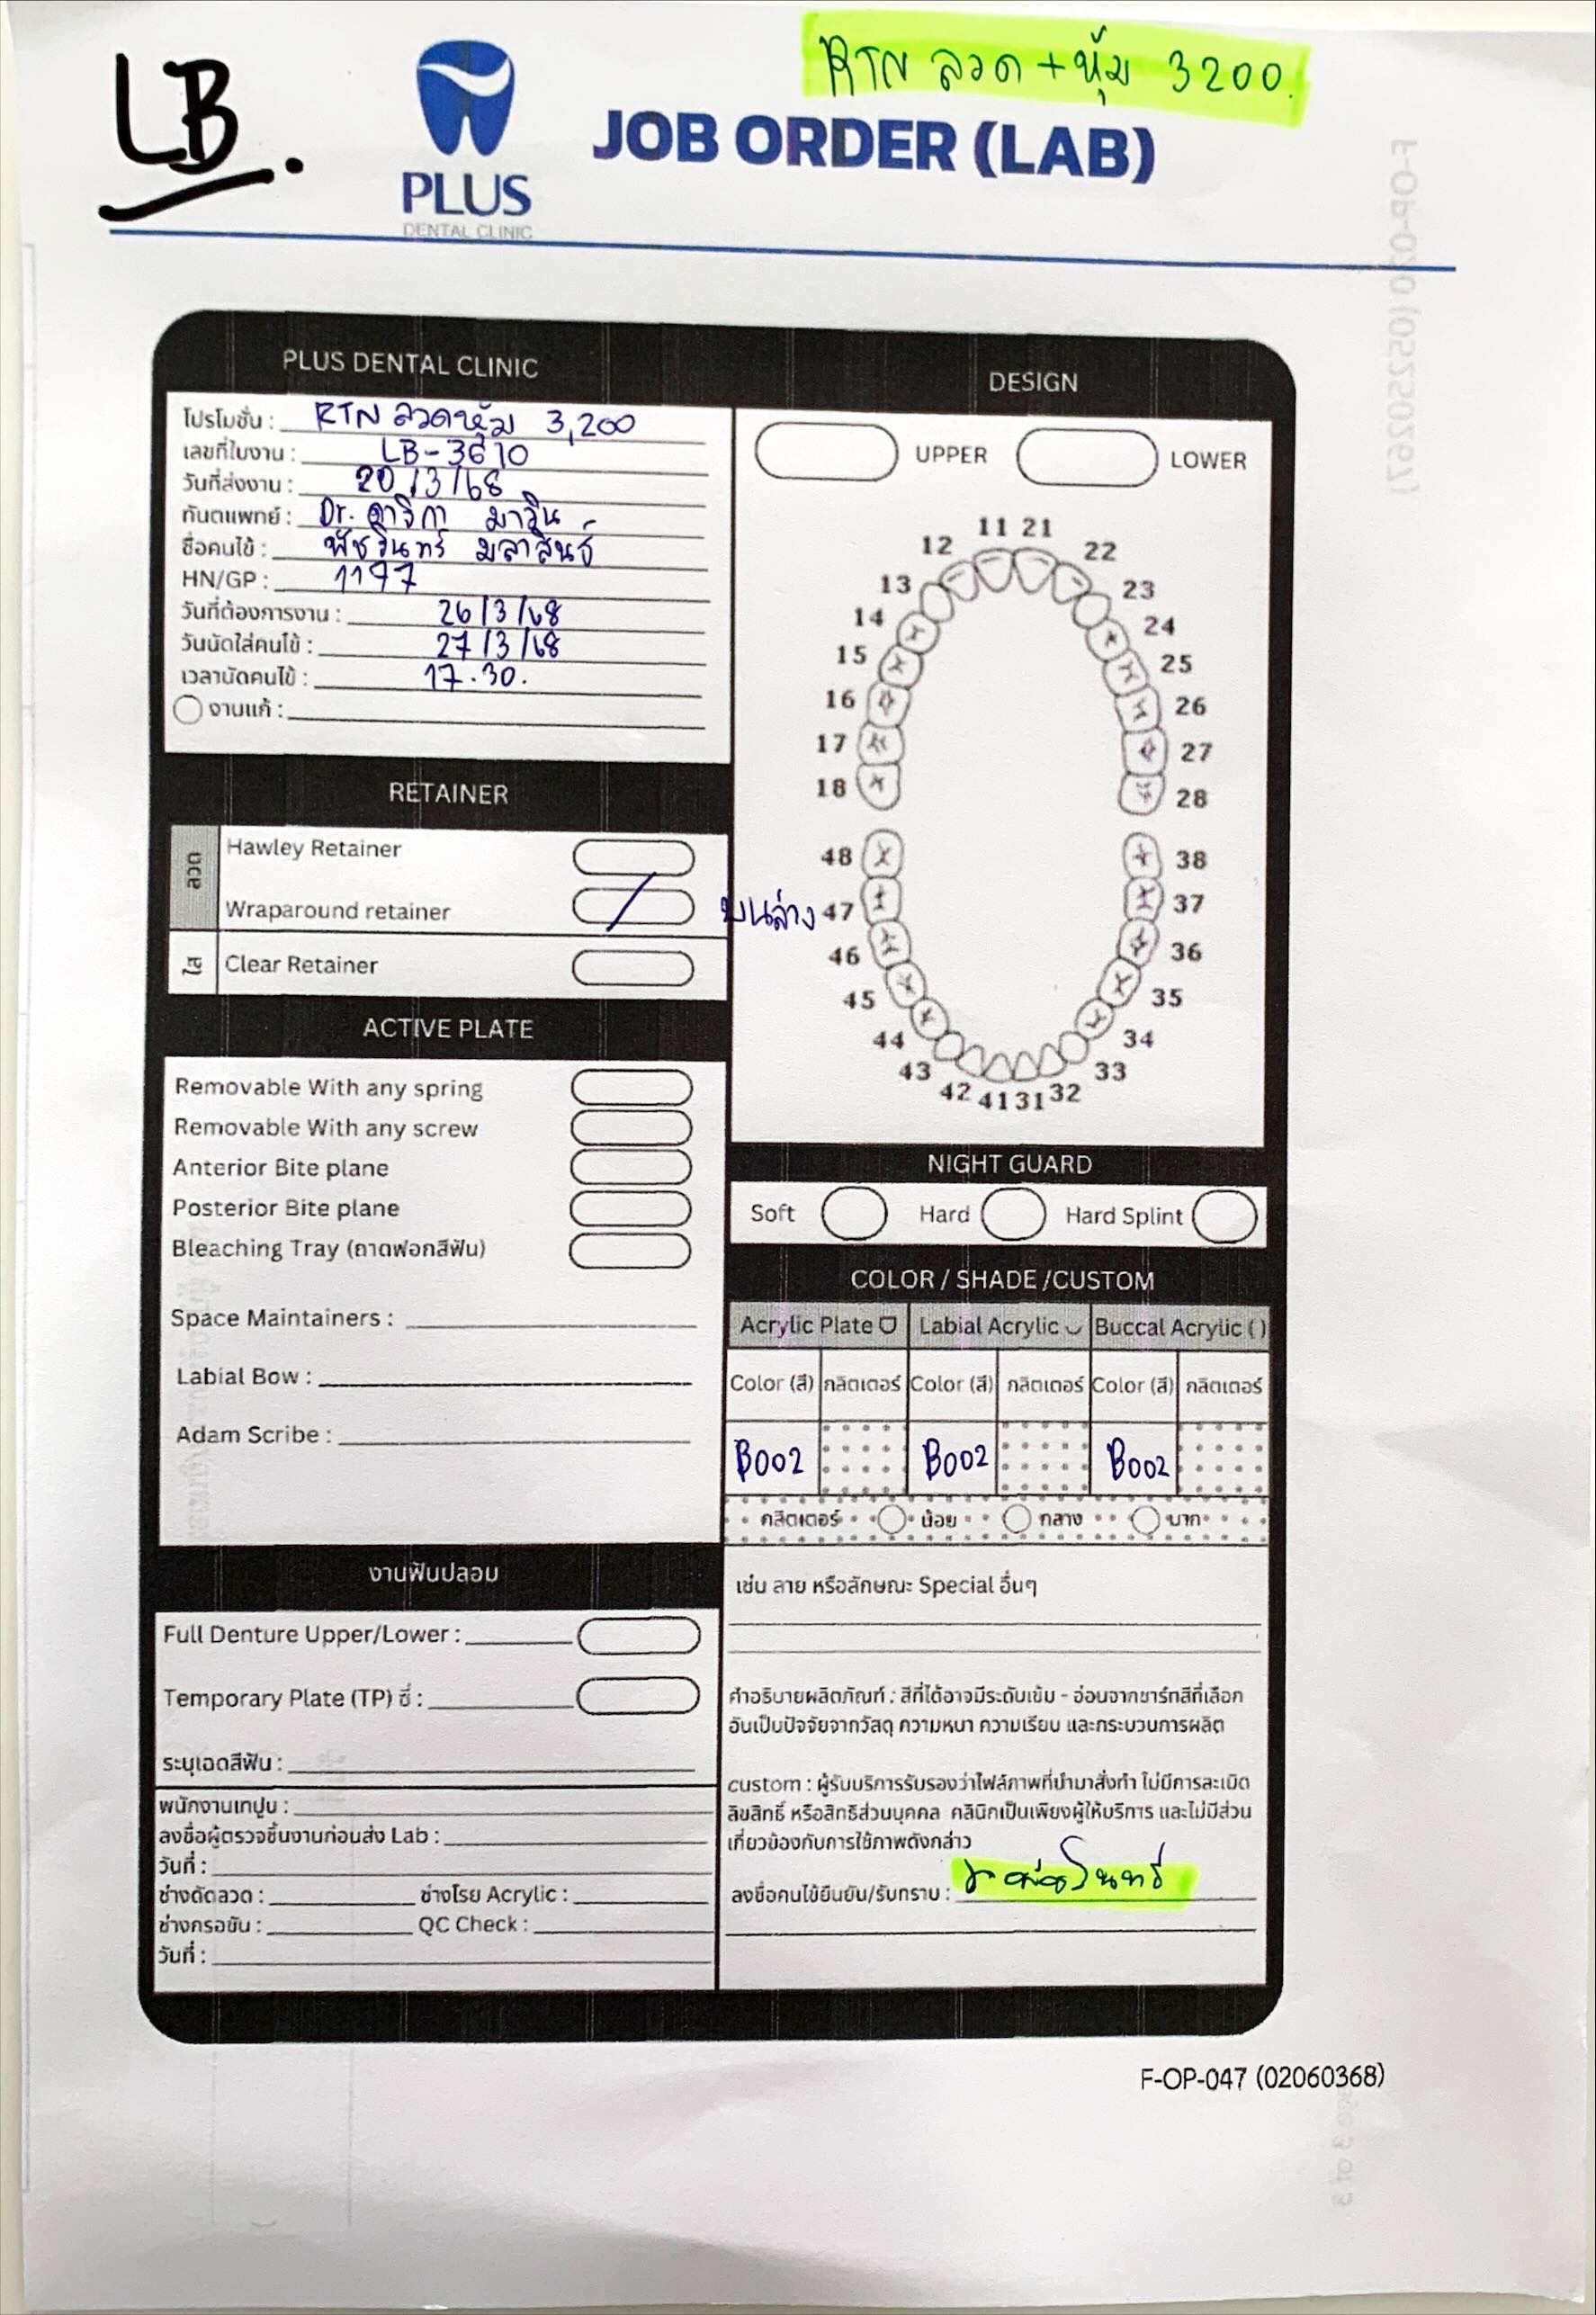 LB.
PLUS
DENTAL CLINIC
RTN ลวด+หุ้ม 3200.
JOB ORDER (LAB)
PLUS DENTAL CLINIC
โปรโมชั่น : RTN ลวดหุ้ม 3,200
เลขที่ใบงาน : LB-3610
วันที่ส่งงาน : 20/3/68
ทันตแพทย์ : Dr.
ชื่อคนไข้ : พัชรินทร์ มลาสินธ์
HN/GP : 1197
วันที่ต้องการงาน : 26/3/68
วันนัดใส่คนไข้ : 27/3/68
เวลานัดคนไข้ : 17.30.
งานแก้ :
RETAINER
ลวด
Hawley Retainer
Wraparound retainer / บนล่าง
ใส
Clear Retainer
ACTIVE PLATE
Removable With any spring
Removable With any screw
Anterior Bite plane
Posterior Bite plane
Bleaching Tray (ถาดฟอกสีฟัน)
Space Maintainers :
Labial Bow :
Adam Scribe :
งานฟันปลอม
Full Denture Upper/Lower :
Temporary Plate (TP) ซี่ :
ระบุเฉดสีฟัน :
พนักงานเทปูน :
ลงชื่อผู้ตรวจชิ้นงานก่อนส่ง Lab :
วันที่ :
ช่างดัดลวด : ช่างโรย Acrylic :
ช่างกรอขัน : QC Check :
วันที่ :
DESIGN
UPPER LOWER
11 21
12 22
13 23
14 24
15 25
16 26
17 27
18 28
48 38
47 37
46 36
45 35
44 34
43 33
42 41 31 32
NIGHT GUARD
Soft Hard Hard Splint
COLOR / SHADE /CUSTOM
Acrylic Plate Labial Acrylic Buccal Acrylic ( )
Color (สี) กลิตเตอร์ Color (สี) กลิตเตอร์ Color (สี) กลิตเตอร์
B002 B002 B002
กลิตเตอร์ น้อย กลาง มาก
เช่น ลาย หรือลักษณะ Special อื่นๆ
คำอธิบายผลิตภัณฑ์ : สีที่ได้อาจมีระดับเข้ม - อ่อนจากชาร์ทสีที่เลือก
อันเป็นปัจจัยจากวัสดุ ความหนา ความเรียบ และกระบวนการผลิต
custom : ผู้รับบริการรับรองว่าไฟล์ภาพที่นำมาสั่งทำ ไม่มีการละเมิด
ลิขสิทธิ์ หรือสิทธิส่วนบุคคล คลินิกเป็นเพียงผู้ให้บริการ และไม่มีส่วน
เกี่ยวข้องกับการใช้ภาพดังกล่าว
ลงชื่อคนไข้ยืนยัน/รับทราบ :
F-OP-047 (02060368)